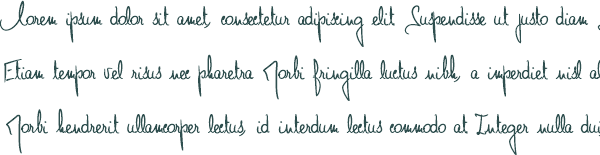 Lorem ipsum dolor sit amet, consectetur adipiscing elit Suspendisse ut justo diam
Etiam tempor vel risus nec pharetra Morbi fringilla luctus nibh, a imperdiet nisl
Morbi hendrerit ullamcorper lectus, id interdum lectus commodo at Integer nulla